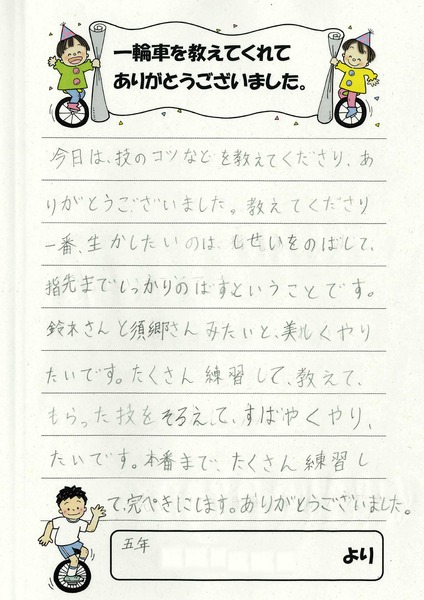 一輪車を教えてくれて
ありがとうございました。
今日は、技のコツなどを教えてくださり、あ
りがとうございました。教えてくださり
一番、生かしたいのは、しせいをのばして、
指先までしっかりのばすということです。
鈴木さんと須郷さんみたいと、美しくやり
たいです。たくさん練習して、教えて、
もらった技をそろえして、すばやくやり、
たいです。本番まで、たくさん練習し
て、完ぺきにします。ありがとうございました。
五年
より